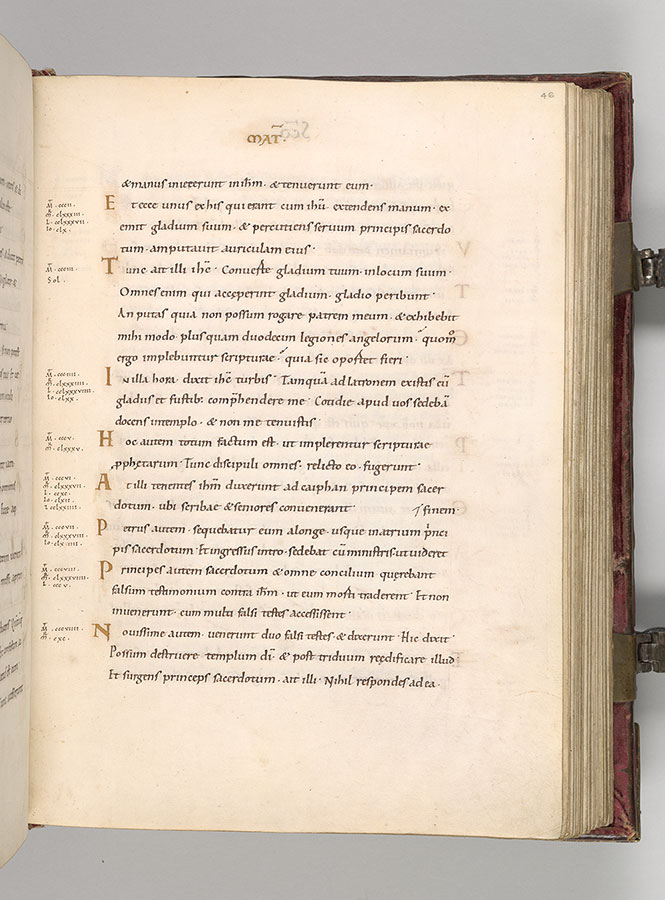 46
MAT̄·
& manus iniecerunt inihm̄· & tenuerunt eum·
E t ecce unus ex his qui erant cum ihū· extendens manum· ex
emit gladium suum· & percutiens seruum principis sacerdo
tum· amputauit auriculam eius·
T unc ait illi ihc̄· Conuerte gladium tuum· inlocum suum·
Omnes enim qui acceperint gladium· gladio peribunt·
An putas quia non possum rogare patrem meum· & exhibebit
mihi modo plus quam duodecim legiones angelorum· quom̊
ergo implebuntur scripturae· quia sic oportet fieri·
I N illa hora dixit ihc̄ turbis· Tamquā ad latronem existis cū
gladiis et fustib; comp̄hendere me· Cotidie apud uos sedebā
docens intemplo· & non me tenuistis·
H oc autem totum factum est· ut implerentur scripturae
pphetarum· Tunc discipuli omnes· relicto eo· fugerunt·
A t illi tenentes ihm̄ duxerunt ad caiphan principem sacer
dotum· ubi scribae & seniores conuenerant· finem·
P etrus autem· sequebatur eum alonge· usque inatrium p̄nci
pis sacerdotum· Et ingressus intro· sedebat cū ministris ut uideret
P rincipes autem sacerdotum & omne concilium querebant
falsum testimonium contra ihm̄· ut eum morti traderent· Et non
inuenerunt· cum multi falsi testes accessissent·
N ouissime autem· uenerunt duo falsi testes· & dixerunt· Hic dixit·
Possum destruere templum dī· & post triduum reedificare illud
Et surgens princeps sacerdotum· ait illi· Nihil respondes ad ea·